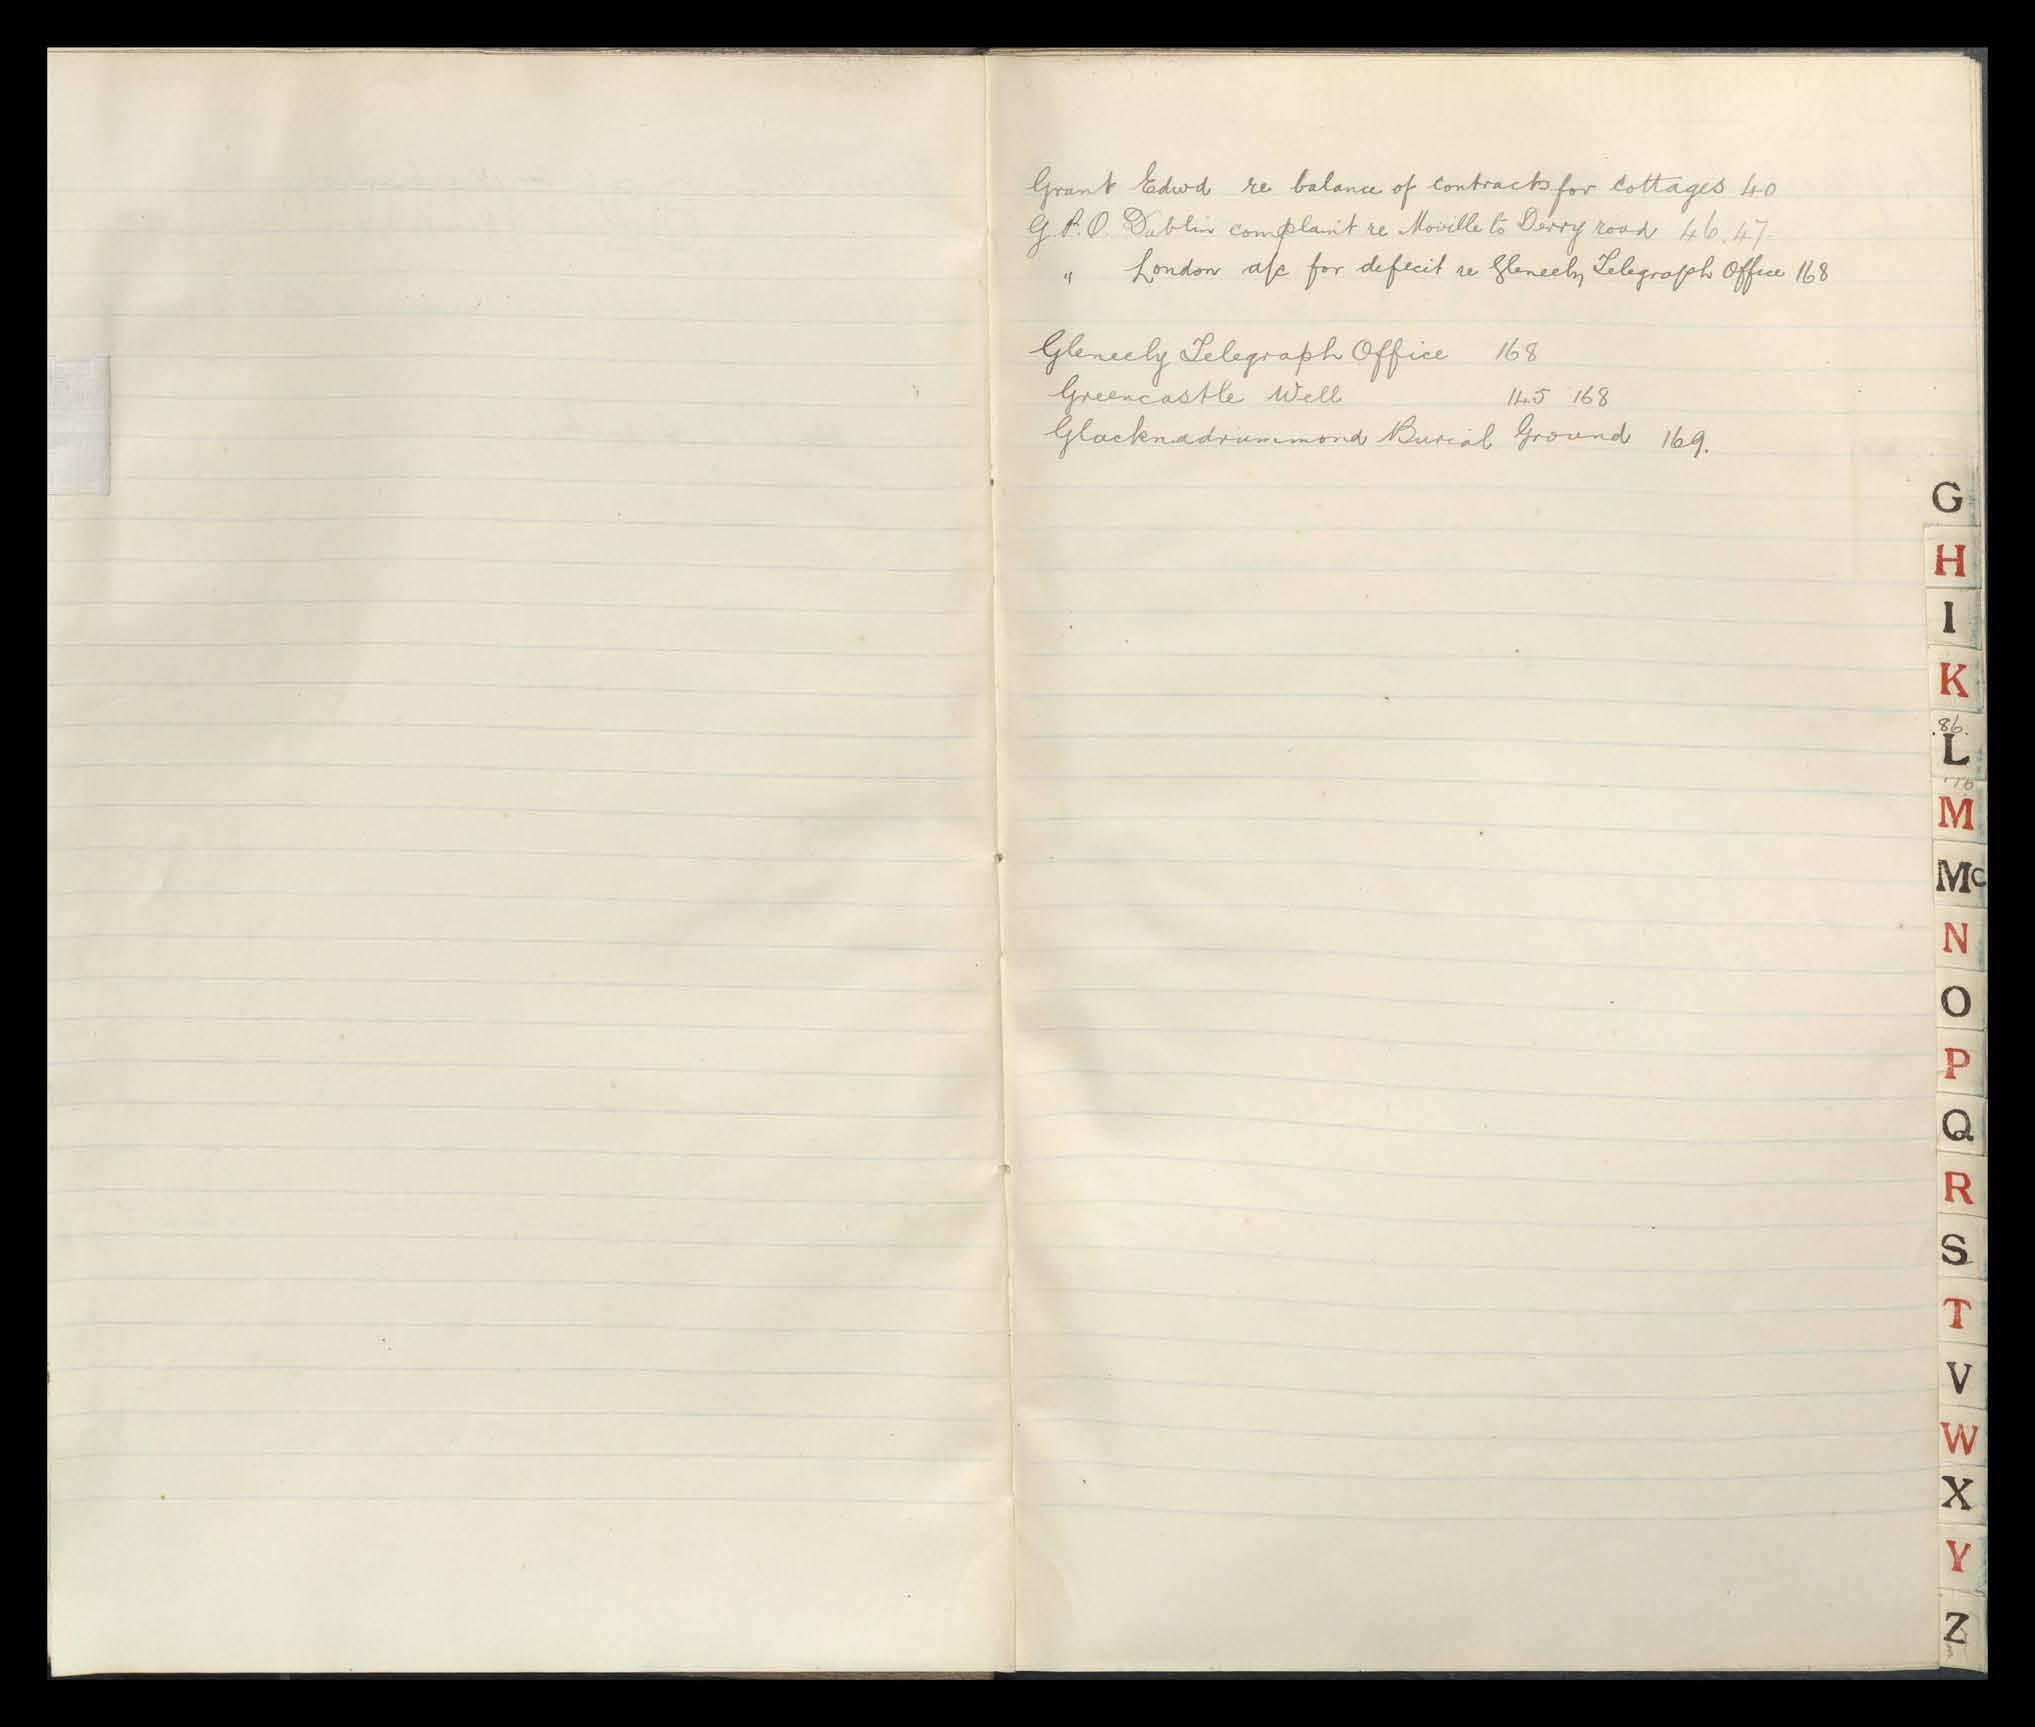 Grant Edwd re balance of contracts for cottages 40
G.P.O. Dublin complaint re Moville to Derry road 46. 47.
" London a/c for defecit re Gleneely Telegraph Office 168
Gleneely Telegraph Office 168
Greencastle Well 145 168
Glacknadrummond Burial Ground 169.
G
H
I
K
.86.
L
M
Mc
N
O
P
Q
R
S
T
V
W
X
Y
Z